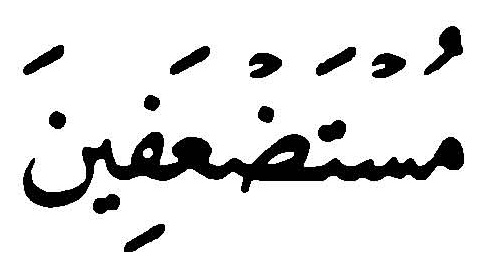 مُسْتَضْعَفِينَ